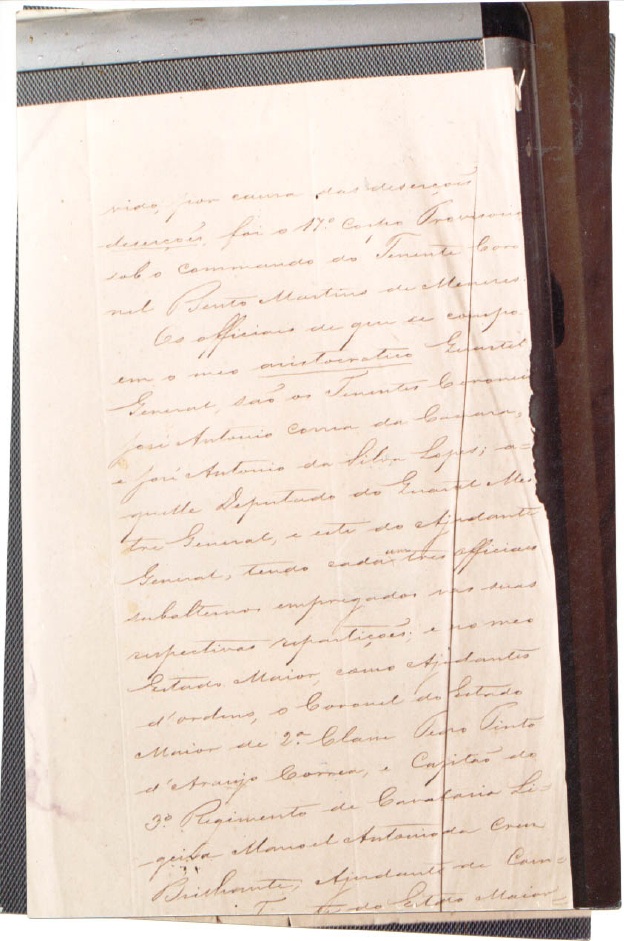 rido, por causa das deserções
deserções, foi o 17º Corpo Provisorio
sob o commando do Tenente Coro
nel Bento Martins de Menezes
Os officiaes de que se compo
em o meo aristocratico Quartel
General, são os Tenentes Coroneis
José Antonio Correa da Camara,
e José Antonio da Silva Lopes; a=
quelle Deputado do Quartel Mes
tre General, e este do Ajudante
General, tendo cada um tres officiaes
subalternos empregados nas suas
respectivas repartições; e no meo
Estado Maior, como Ajudantes
d'ordens, o Coronel do Estado
Maior de 2ª Classe Pedro Pinto
d'Araujo Correa, e Capitão do
3º Regimento de Cavallaria Li=
geira Manoel Antonio da Cruz
Brilhante, Ajudante de Cam=
do Estado Maior